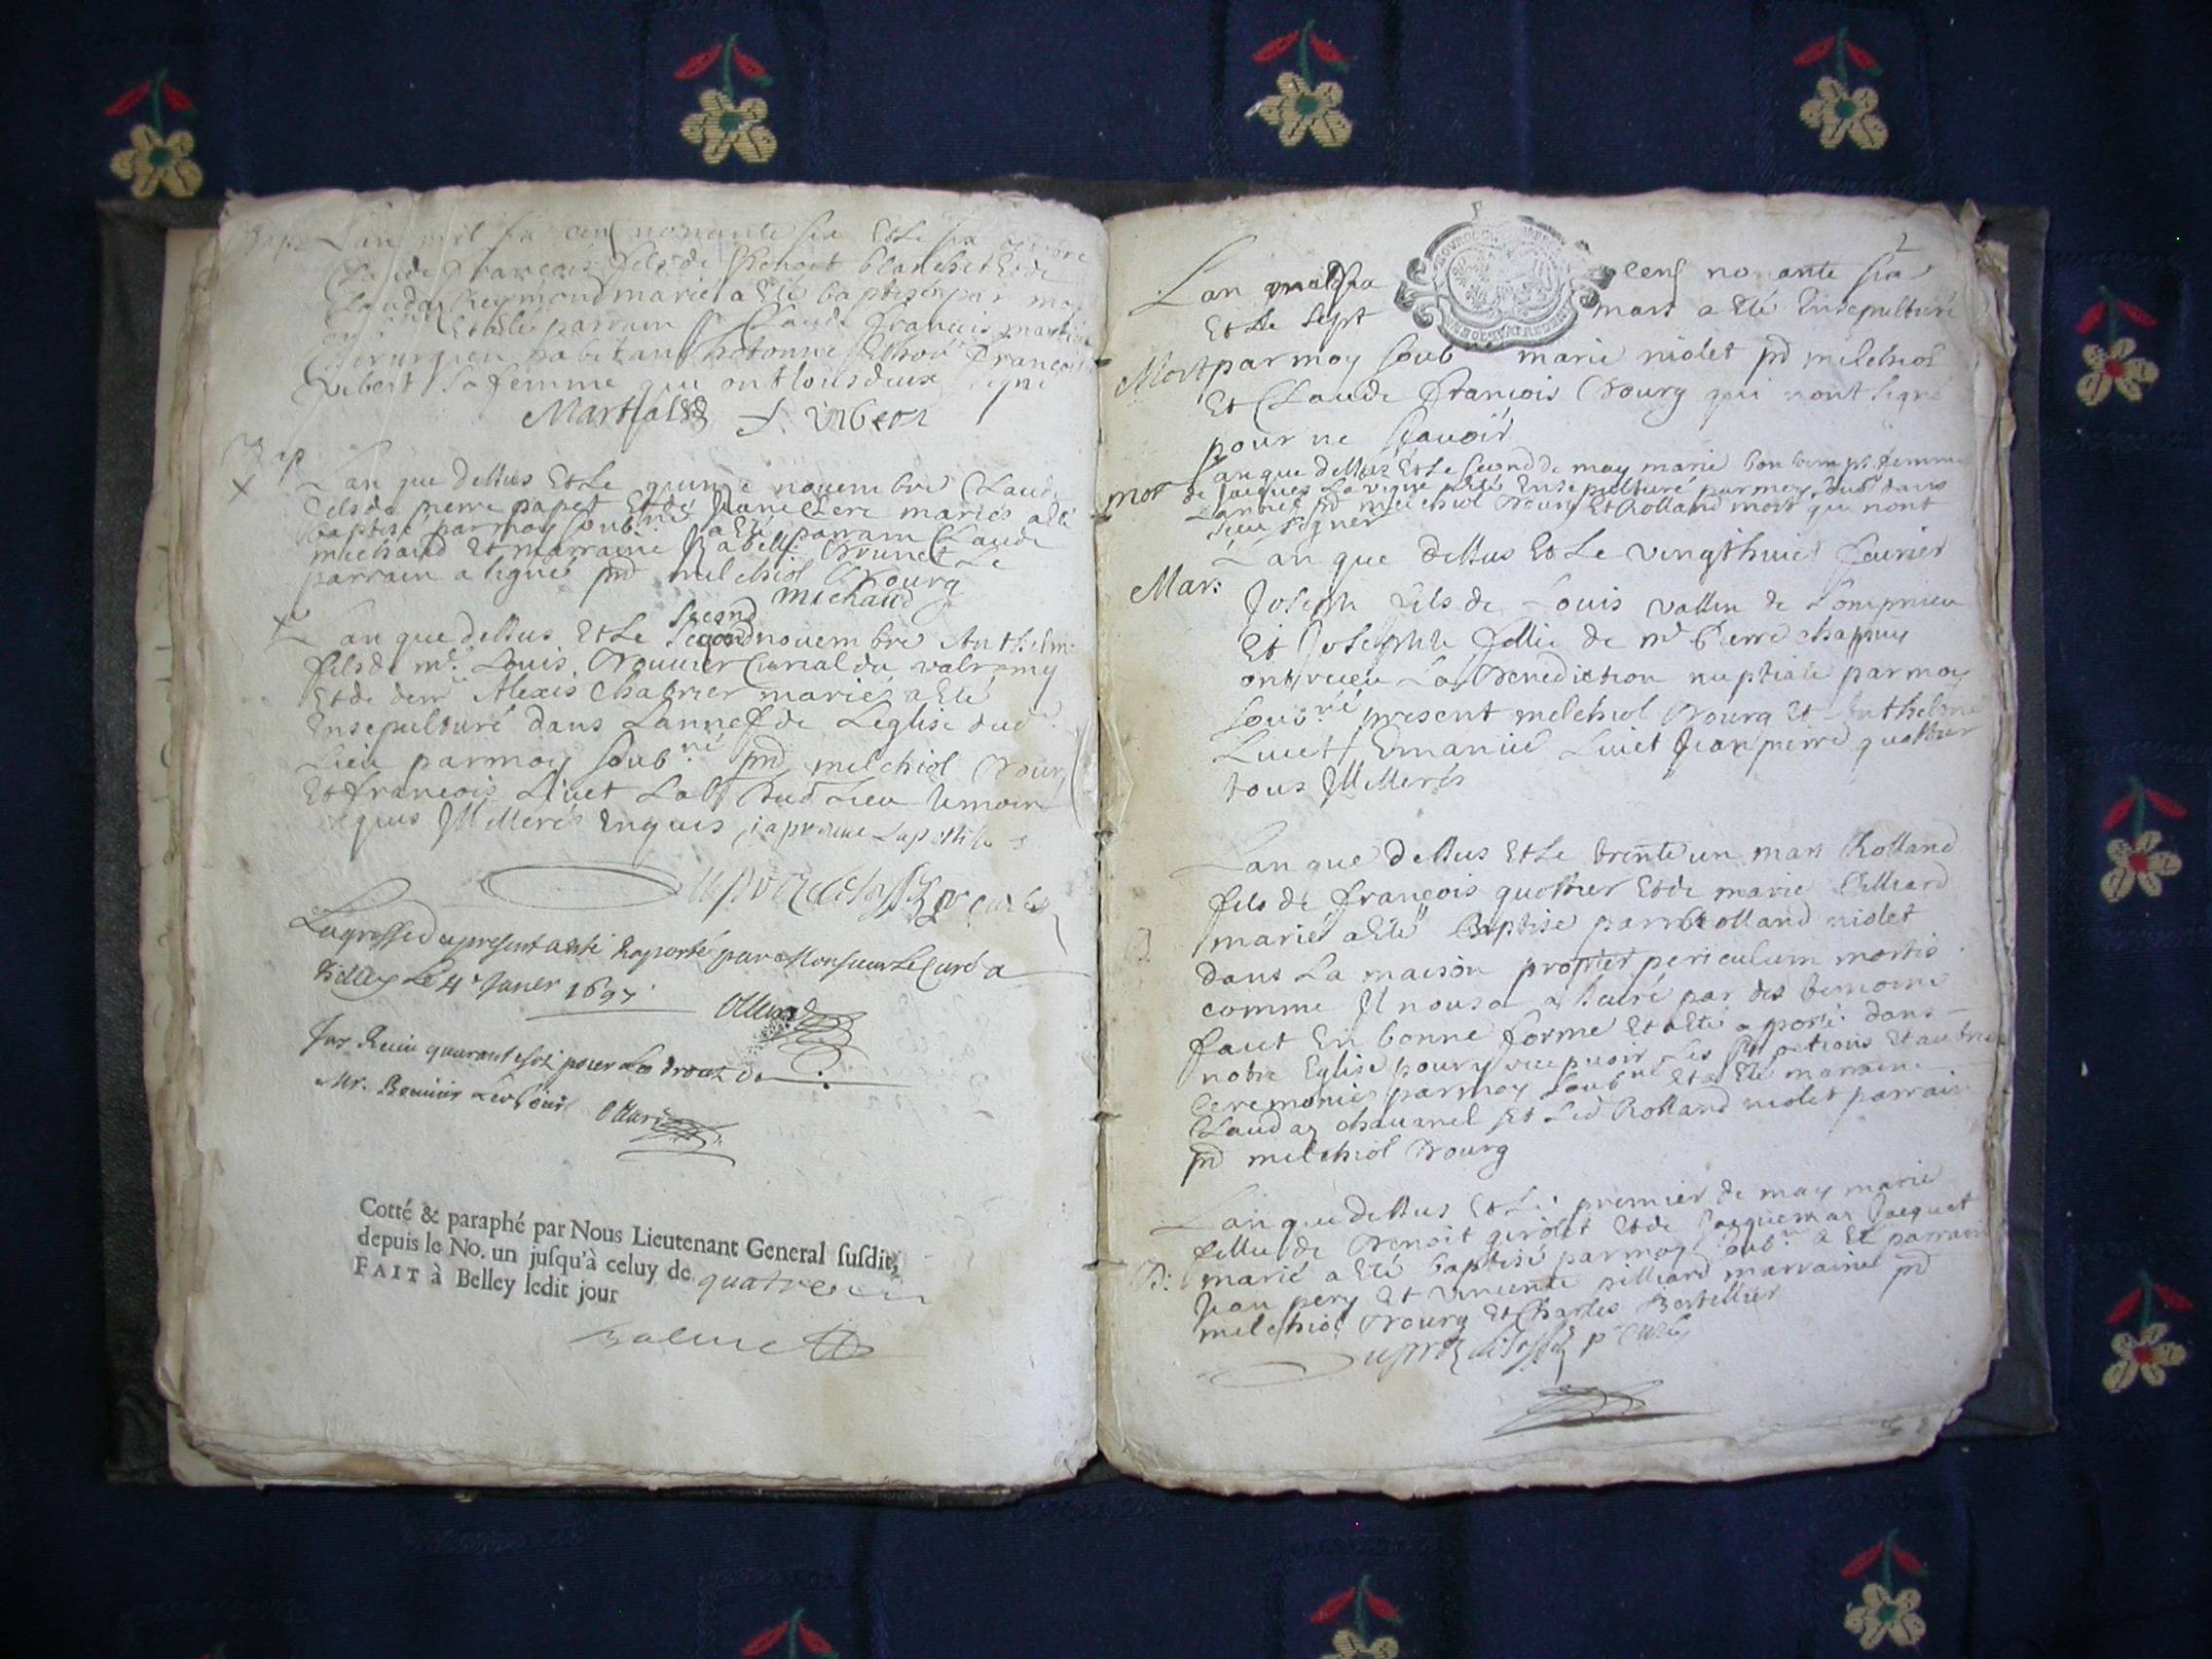 Bap. L'an mil six cens nonante six Et Le six
Claude françois fils de Benoit blanchet Et de
Clauda Reymond mariés a Eté baptisé par moy
Et a Eté parrain Sr Claude francois
Chirurgien habitant
sa femme qui ont tous deux signé
Bap
L'an que dessus Et Le quinze nouembre Claude
fils de pierre papet Et de mariés a Eté
baptisé par moy soub.né a Eté parrain Claude
michaud Et marraine Isabelle Brunet Le
parrain a signé pnt melchiol Bourg
michaud
Second
L'an que dessus Et Le Second nouembre Anthelme
fils de mr. Louis Curial du valromey
Et de demlle Alexis Chabrier mariés a Eté
Ensepulturé dans Lannef de Leglise dud
Lieu par moy soub.né pnt melchiol Bourg
Et francois Liuet Lab. dud Lieu temoins
requis Illiterés Enquis
La grosse du present a esté Raporté par Monsieur Le Curé a
Belley Le 4e Januer 1697
Jay Receu quarante sols pour Les droits de
Mr. Led jour
Cotté & paraphé par Nous Lieutenant General susdit,
depuis le No. un jusqu'à celuy de quatre
FAIT à Belley ledit jour
2
L'an mil six cens nonante six
Et Le sept mars a Eté Ensepulturé
Mort par moy soub marie niolet pnt melchiol
Et Claude francois Bourg qui nont signé
pour ne scauoir
Lan que dessus Et Le second de may marie bontemps femme
mor de Jacques Lavigne a Eté Ensepulturé par moy dans
Lannef pnt melchiol Bourg Et Rolland mort qui nont
sceu signer
L'an que dessus Et Le vingthuict feurier
Mar: Joseph fils de Louis vallin de Lompnieu
Et Josephte fillie de mr Pierre chappuy
ont receu La Benediction nuptiale par moy
soub.né present melchiol Bourg Et Anthelme
Liuet Emanuel Liuet Jean pierre quottier
tous Illiterés
L'an que dessus Et Le trente un mars Rolland
fils de françois quottier Et de marie billiard
B mariés a Eté Baptisé par Rolland niolet
dans La maison propter periculum mortis
comme Il nous a asseuré par des temoins
faut En bonne forme Et a Eté aporté dans
notre Eglise pour y receuoir Les Et autres
Ceremonies par moy soub.né Et a Eté marraine
Clauda chauanel Et Led Rolland niolet parrain
pnt melchiol Bourg
L'an que dessus Et Le premier de may marie
fillie de Benoit girolet Et de Jacquemaz Jacquet
B: mariés a Eté baptisé par moy soub.né a Eté parrain
Jean pery Et vincente billiard marraine pnt
melchiol Bourg Et Charles Bertellier